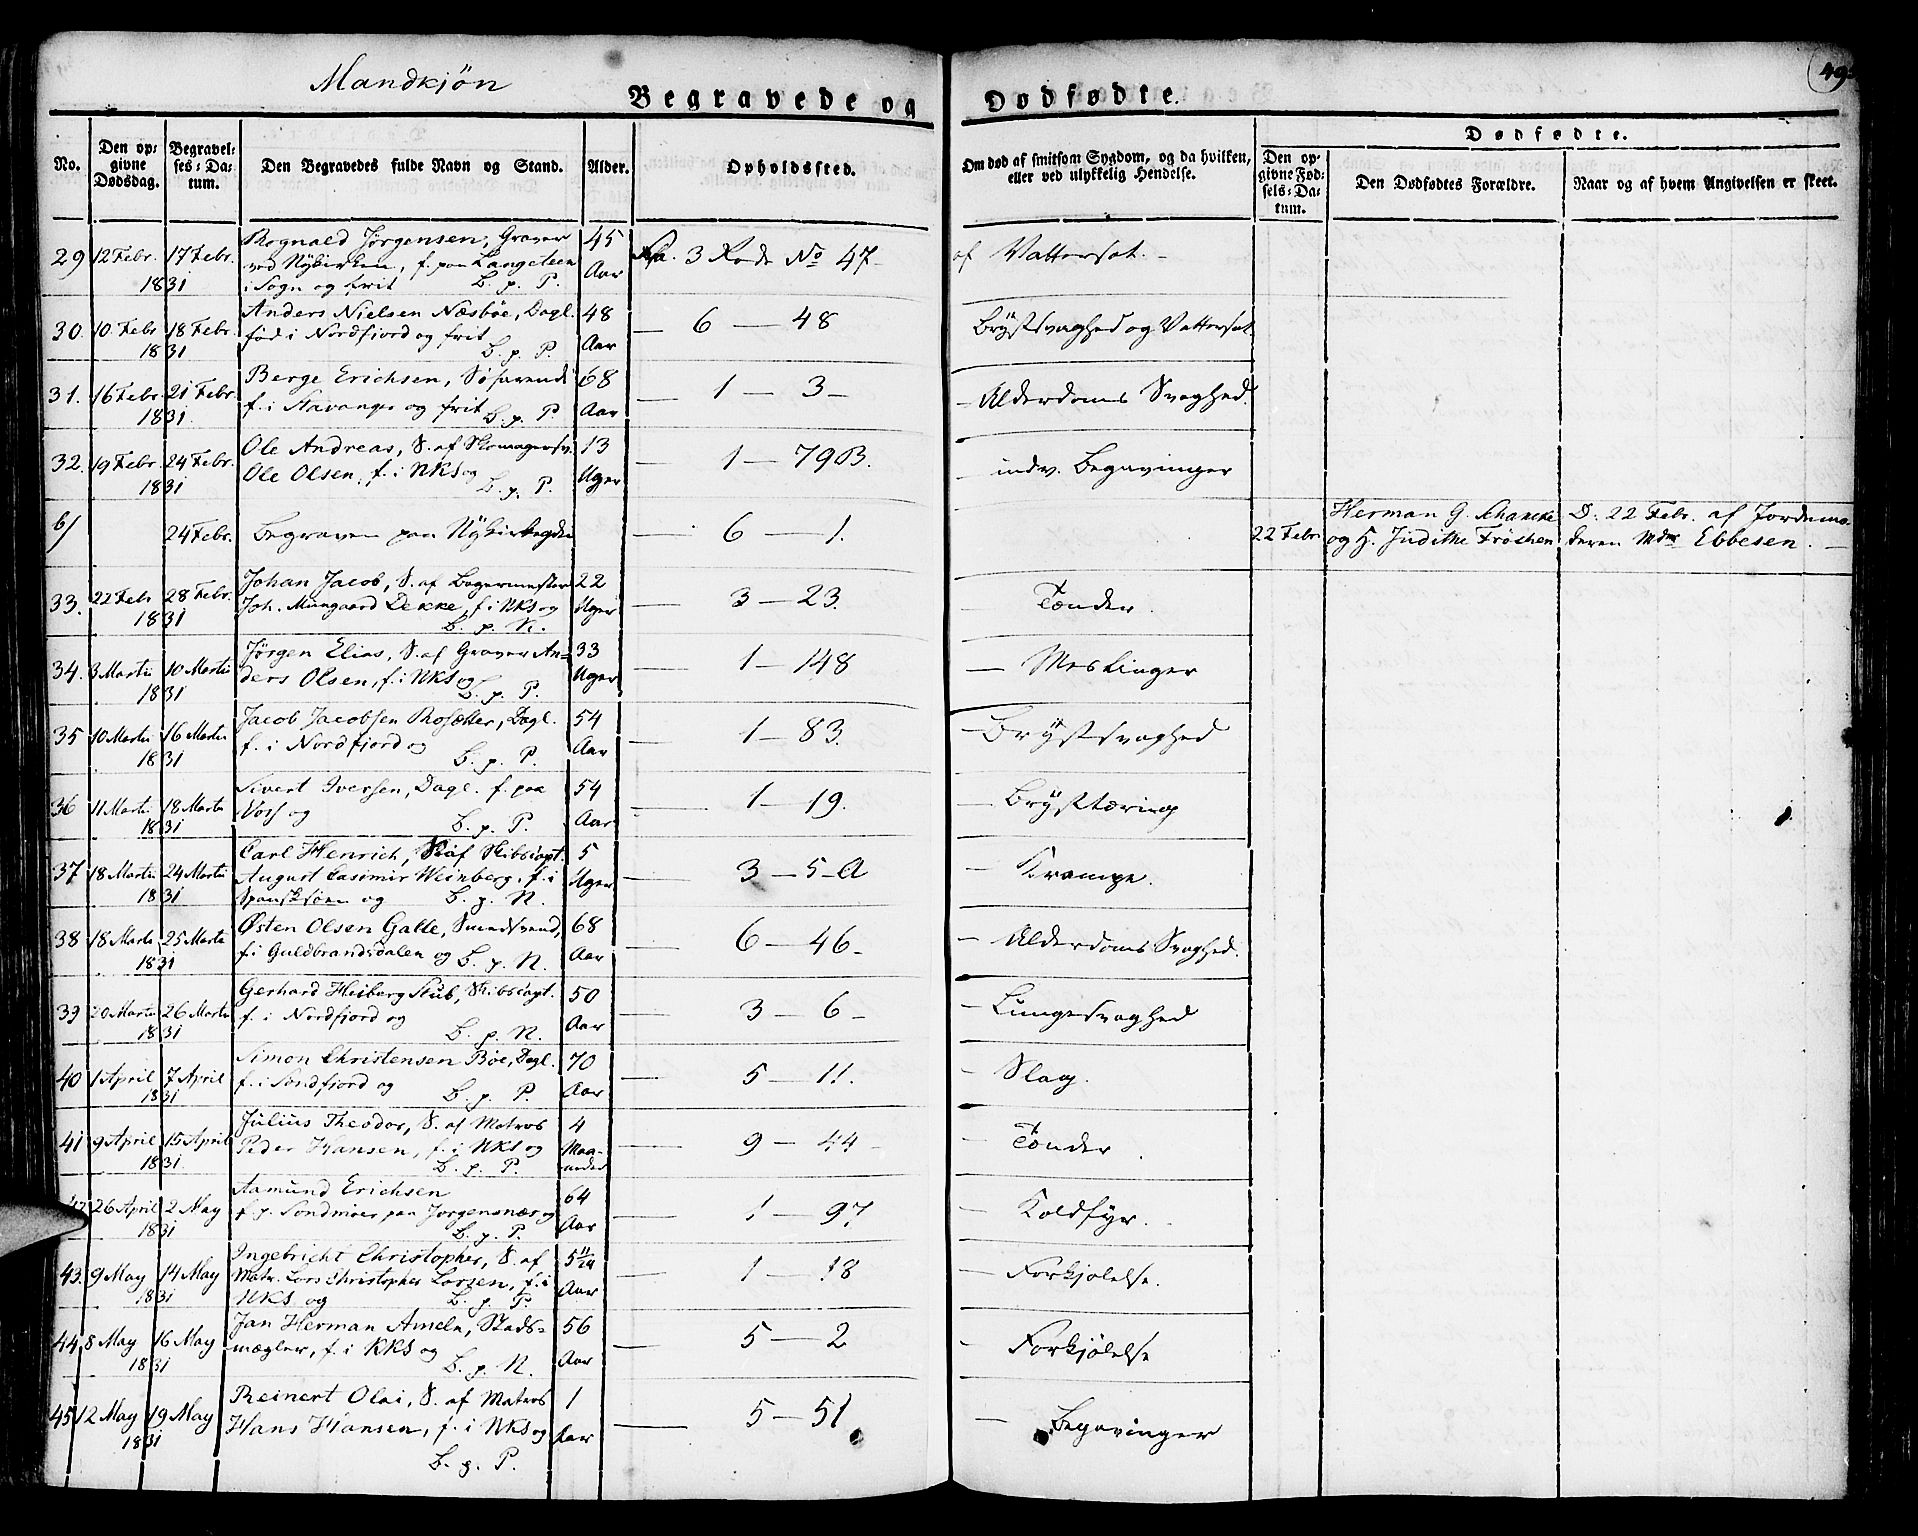 Mandkjön
Begravede og Dødfødte.
49
No.
Den opgivne Dødsdag.
Begravelses-Datum.
Den Begravedes fulde Navn og Stand.
Alder.
Opholdssted.
Om død af smitsom Sygdom, og da hvilken, eller ved ulykkelig Hendelse.
Dødfødte.
Den opgivne Fødsels-Datum.
Den Dødfødtes Forældre.
Naar og af hvem Angivelsen er skeet.
29 12 Febr. 17 Febr. Rognald Jørgensen, Graver 45 3 Rode No 47 af Vattersot.
1831 ved Nykirken, f. paa Langeteen Aar
i Sogn og frit B. p. P.
30. 10 Febr 18 Febr. Anders Nielsen Næsbøe, Dagl. 48 — 6 — 48 Brystsvaghed og Vattersot.
1831 fød i Nordfjord og frit Aar
B. p. P.
31. 16 Febr. 21 Febr. Berge Erichsen, Søfarende 68 — 1 — 3 — Alderdoms Svaghed.
1831 f. i Stavanger og frit B. p. P. Aar
32. 19 Febr. 24 Febr. Ole Andreas, S. af Skomagersv. 13 — 1 — 79 B. indv. Begavinger
1831 Ole Olsen, f. i NKS og Uger
B. p. P.
6/ 24 Febr. Begraven paa Nykirkegden — 6 — 1. 22 Febr. Herman G. Schancke D. 22 Febr. af Jordemo-
og H. Judithe Frøchen deren Mdm Ebbesen. —
33. 22 Febr 28 Febr. Johan Jacob, S. af Bagermester 22 — 3 — 23. Tænder.
1831 Joh. Mungaard Dekke, f. i NKS og Uger
B. p. N.
34. 3 Martii 10 Martii Jørgen Elias, S. af Graver An- 33 — 1 — 148 — Meslinger
1831 ders Olsen, f. i NKS og Uger
B. p. P.
35 10 Martii 16 Martii Jacob Jacobsen Rosætter, Dagl. 54 — 1 — 83. — Brystsvaghed
1831 f. i Nordfjord og Aar
B. p. P.
36 11 Martii 18 Martii Sivert Iversen, Dagl. f. paa 54 — 1 — 19. — Brysttæring
1831 Vors og B. p. P. Aar
37 18 Martii 24 Martii Carl Henrich, S. af Skibscapt. 5 3 — 5 A — Krampe.
1831 August Casimir Weinberg, f. i Uger
og B. p. N.
38 18 Martii 25 Martii Østen Olsen Galle, Smedsvend, 68 — 6 — 46 — — Alderdoms Svaghed.
1831 f. i Guldbrandsdalen og B. p. N. Aar
39 20 Martii 26 Martii Gerhard Heiberg Stub, Skibscapt. 50 — 3 — 6 — — Lungesvaghed
1831 f. i Nordfjord og Aar
B. p. N.
40 1 April 7 April Simon Christensen Bøe, Dagl. 70 — 5 — 11. — Slag.
1831 f. i Søndfjord og Aar
B. p. P.
41 9 April 15 April Julius Theodor, S. af Matros 4 — 9 — 44 — Tænder.
1831 Peder Hansen, f. i NKS og Maa-
B. p. P. neder
26 April 2 May Aamund Erichsen 64 — 1 — 97. — Koldfyr.
1831 f. p. Søndmøer paa Jorgensnær og Aar
B. p. P.
43. 9 May 14 May Ingebricht Christopher, S. af 5 11/24 — 1 — 18 — Forkjølelse.
1831 Matr. Lars Christopher Larsen, f. i Aar
NKS og B. p. P.
44 8 May 16 May Jan Herman Ameln, Stads- 56 — 5 — 2 — Forkjølelse
1831 mægler, f. i KKS og Aar
B. p. N.
45 12 May 19 May Reinert Olai, S. af Matros 1 — 5 — 51 — Begavinger
1831 Hans Hansen, f. i NKS og Aar
B. p. P.